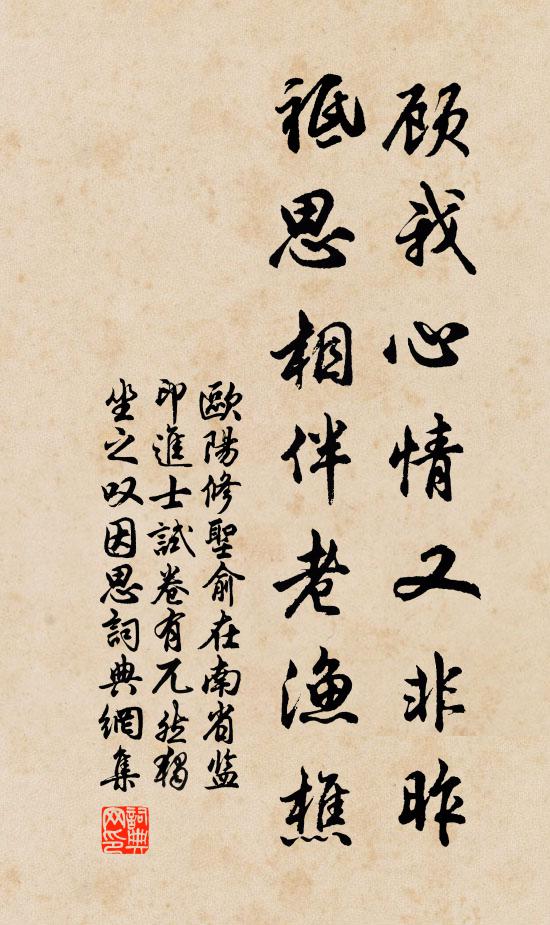 顾我心情又非昨
祗思相伴老渔樵
歐陽修聖俞在南省监
印進士試卷有兀然獨
坐之叹因思詞典網集
詞典网印